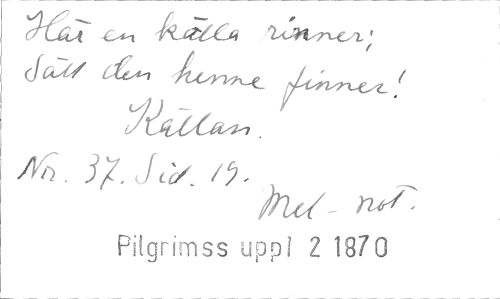 Här en källa rinner;
Säll den henne finner!
Källan.
No. 37. Sid. 19.
Mel-not.
Pilgrimss uppl 2 1870